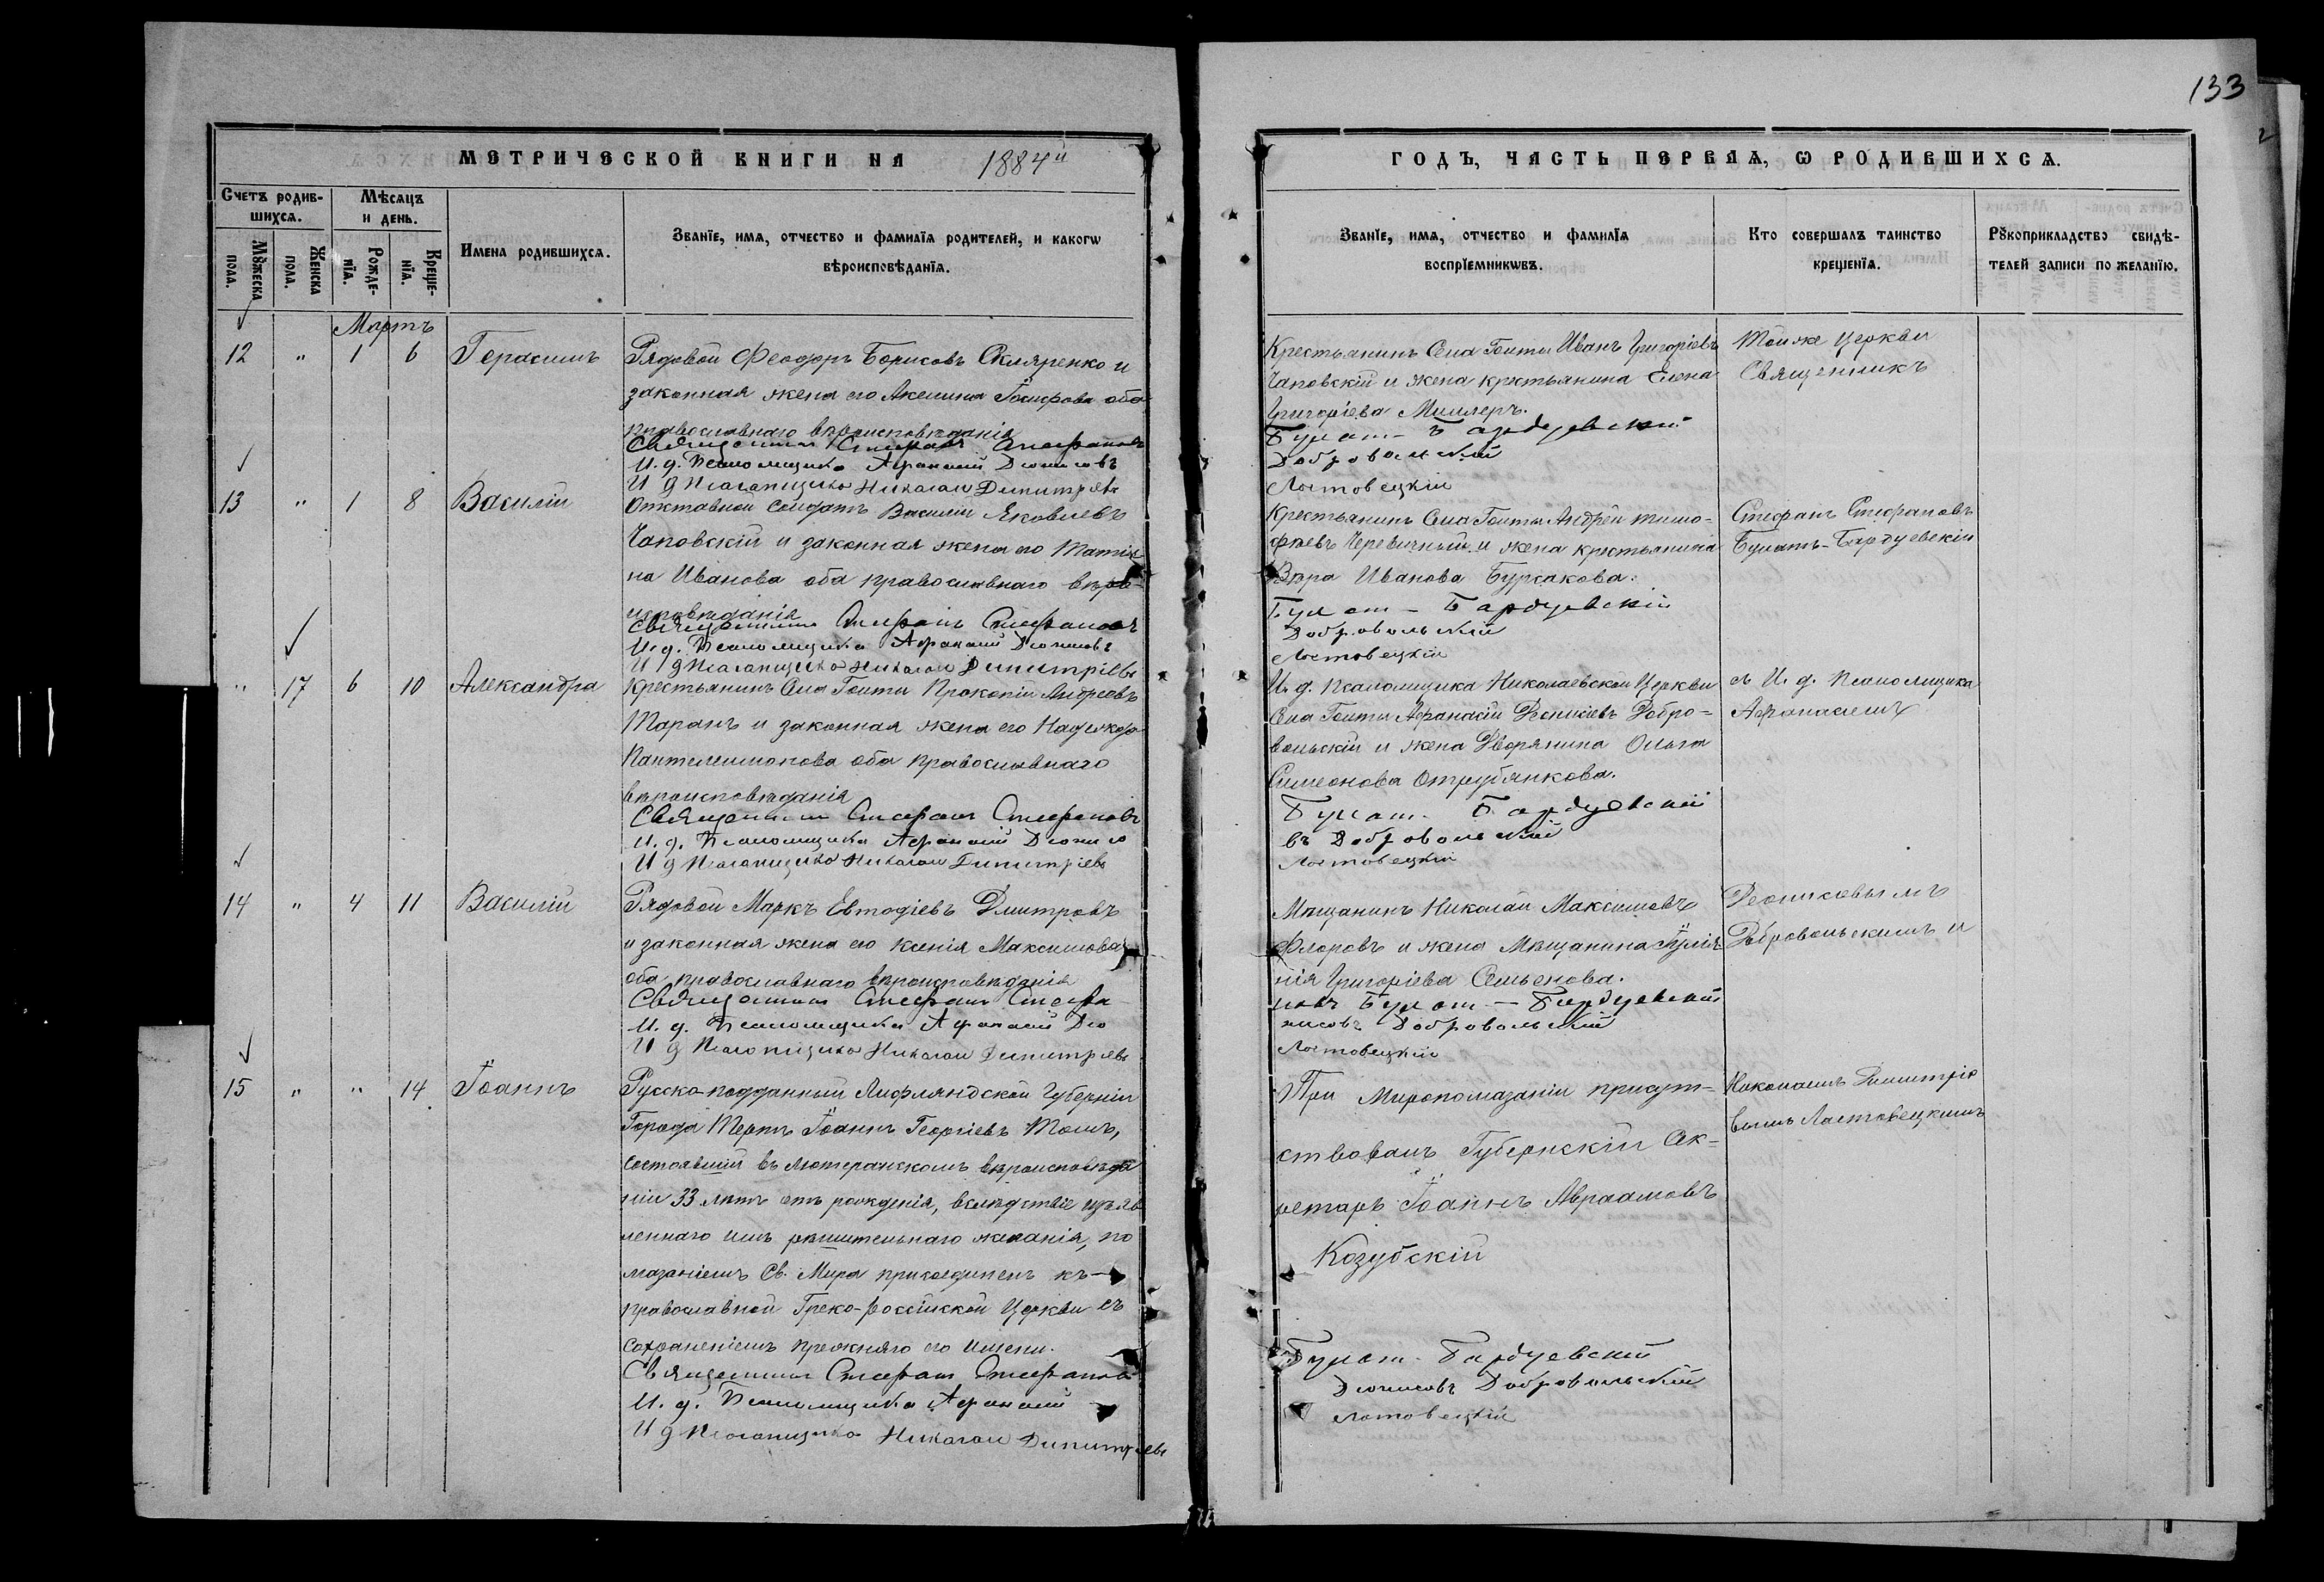 133
МЕТРИЧЕСКОЙ КНИГИ НА 1884й
ГОДЪ, ЧАСТЬ ПЕРВАЯ, Ѡ РОДИВШИХСѦ.
Счетъ родив-
шихсѧ.
Мѣсѧцъ
и день.
Мꙋжеска
пола.
Женска
пола.
Рожде-
нїѧ.
Креще-
нїѧ.
Имена родившихсѧ.
Званїе, имѧ, отчество и фамилїѧ родителей, и какогѡ
вѣроисповѣданїѧ.
Званїе, имѧ, отчество и фамилїѧ
воспрїемникѡвъ.
Кто совершалъ таинство
крещенїѧ.
Рꙋкоприкладство свидѣ-
телей записи по желанїю.
Мартъ
12 " 1 6 Герасимъ
Рядовой Феодоръ Борисовъ Скляренко и
законная жена его Акилина Іосифова оба
православнаго вѣроисповѣданія
Священникъ Стефанъ Стефановъ
И. д. Псаломщика Афанасій Діонисовъ
И д Псаломщика Николай Димитріевъ
Крестьянинъ Села Гоиты Иванъ Григоріевъ
Чаповскій и жена крестьянина Елена
Григоріева Миллеръ.
Булат- Бардуевскій
Добровольскій
Лостовецкій
Той же Церкви
Священникъ
13 " 1 8 Василій
Отставной Солдатъ Василій Яковлевъ
Чаповскій и законная жена его Матро-
на Иванова оба православнаго вѣро-
исповѣданія
Священникъ Стефанъ Стефановъ
И. д. Псаломщика Афанасій Діонисовъ
И д Псаломщика Николай Димитріевъ
Крестьянинъ Села Гоиты Андрей Тимо-
фѣевъ Черевичный и жена крестьянина
Вѣра Иванова Бурсакова.
Булат - Бардуевскій
Добровольскій
Лостовецкій
Стефанъ Стефановъ
Булатъ-Бардуевскій
" 17 6 10 Александра
Крестьянинъ Села Гоиты Прокопій Андреевъ
Таранъ и законная жена его Надежда
Пантелеимонова оба православнаго
вѣроисповѣданія
Священникъ Стефанъ Стефановъ
И. д. Псаломщика Афанасій Діонисо
И д Псаломщика Николай Димитріевъ
И. д. Псаломщика Николаевской Церкви
Села Гоиты Афанасій Деонисіевъ Добро-
вольскій и жена Дворянина Ольга
Симеонова Отрубянкова.
Булат- Бардуевскій
въ Добровольскій
Лостовецкій
съ И. д. Псаломщика
Афанасіемъ
14 " 4 11 Василій
Рядовой Маркъ Евтодіевъ Дмитровъ
и законная жена его Ксенія Максимова
оба православнаго вѣроисповѣданія
Священникъ Стефанъ Стефа
И. д. Псаломщика Афанасій Діо
И д Псаломщика Николай Димитріевъ
Мѣщанинъ Николай Максимовъ
Флоровъ и жена Мѣщанина Іулія
нія Григоріева Семьенова.
новъ Булат - Бардуевскій
нисовъ Добровольскій
Лостовецкій
Деонисовымъ
Добровольскимъ и
15 " " 14 Іоаннъ
Русско-подданный Лифляндской Губерніи
Города Терпъ Іоаннъ Георгіевъ Томъ,
состоявшій въ лютеранскомъ вѣроисповѣда
ніи 33 лѣтъ отъ рожденія, вслѣдствіе изъяв
леннаго имъ рѣшительнаго желанія, по
мазаніемъ Св. Мира присоединенъ къ
православной Греко-Россійской Церкви съ
сохраненіемъ прежняго его имени.
Священникъ Стефанъ Стефановъ
И. д. Псаломщика Афанасій
И д Псаломщика Николай Димитріевъ
При Миропомазаніи присут-
ствовалъ Губернскій Сек-
ретарь Іоаннъ Авраамовъ
Козубскій
Булат- Бардуевскій
Діонисовъ Добровольскій
Лостовецкій
Николаемъ Димитріе
вымъ Лостовецкимъ